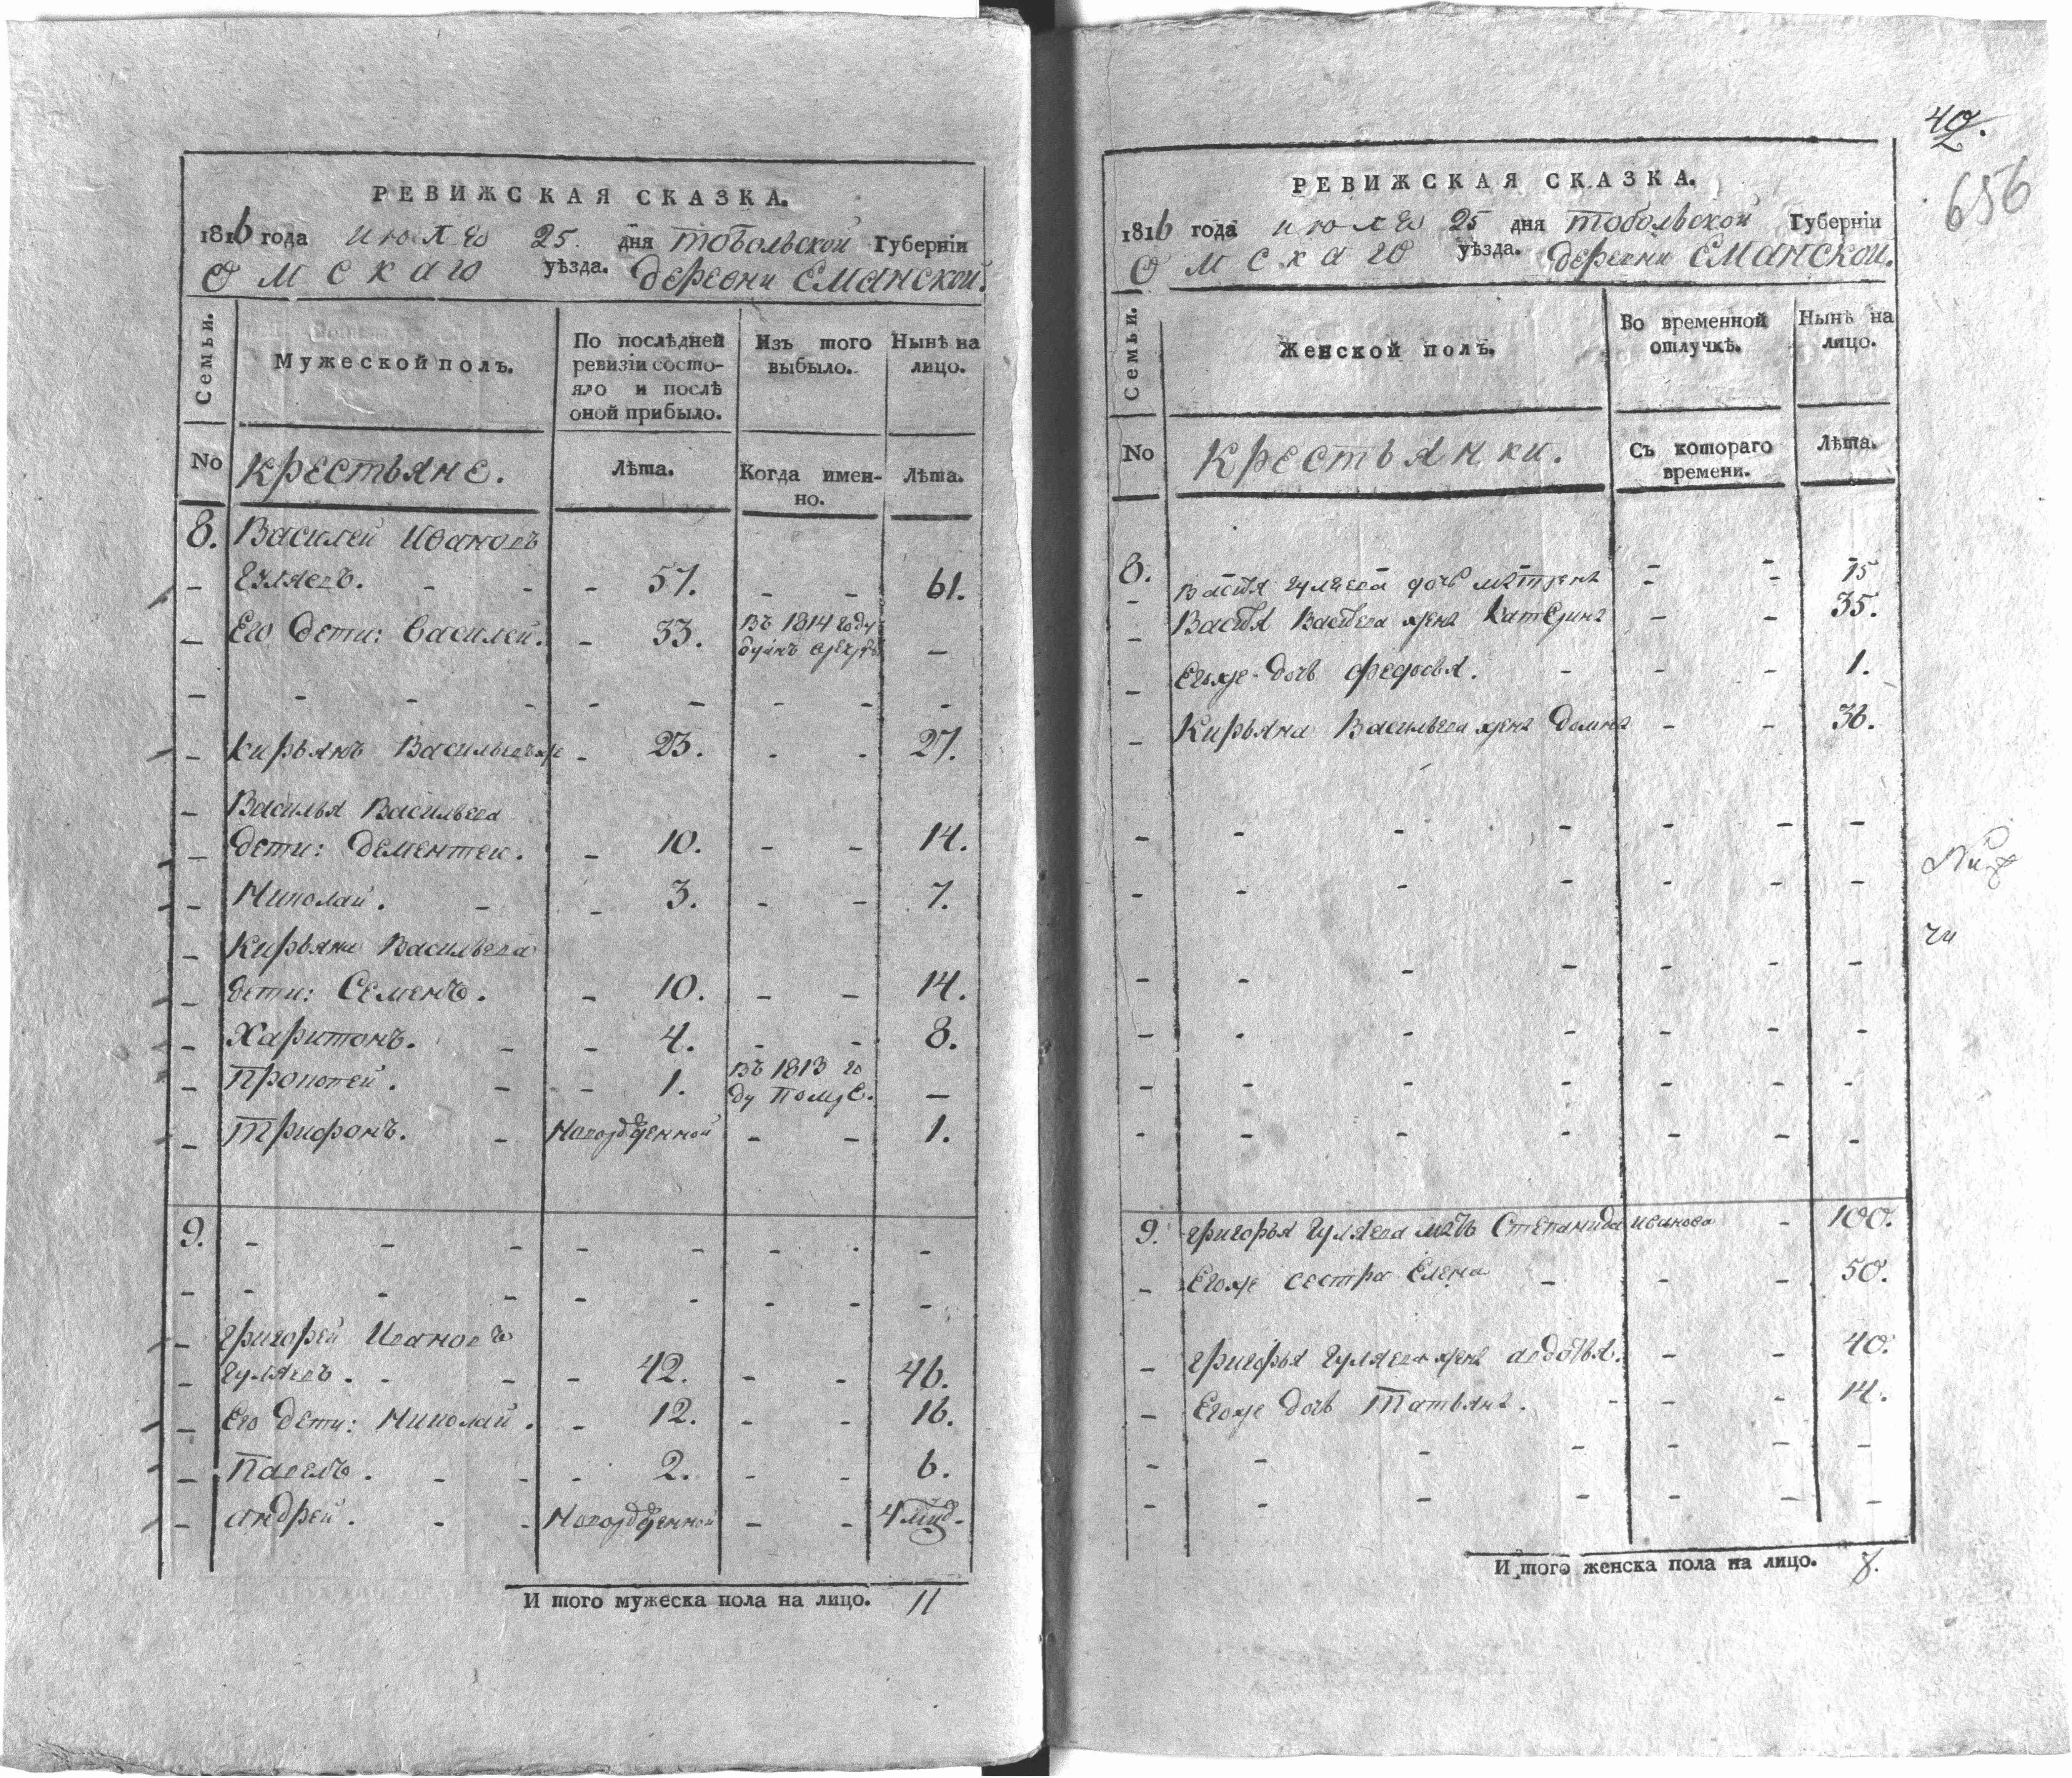 РЕВИЖСКАЯ СКАЗКА.
1816 года июля 25. дня тобольской Губерніи
Омскаго уѣзда. деревни Еманской.
Семьи.
Мужеской полъ.
По послѣдней ревизіи состояло и послѣ оной прибыло.
Изъ того выбыло.
Нынѣ на лицо.
No
крестьяне.
Лѣта.
Когда именно.
Лѣта.
8. Василей Ивановъ
- Гуляевъ. - - - 57. - - 61.
- Его дети: василей. - 33. Въ 1814 году -
- - - - - - - - -
- Кирьянъ Васильевъ же - 23. - - 27.
- Василья Васильева
- дети: дементеи. - 10. - - 14.
- Николаи. - - 3. - - 7.
- Кирьяна Васильева
дети: Семенъ. - 10. - - 14.
- Харитонъ. - - 4. - - 8.
- Прокопей. - - 1. Въ 1813 го
ду помре. -
- Трифонъ. - Новорожденной - - 1.
9. - - - - - - - -
- - - - - - - - -
- григорей Ивановъ
- гуляевъ. - - - 42. - - 46.
- его дети: Николай. - 12. - - 16.
- Павелъ. - - - 2. - - 6.
- андрей. - - Новорожденной - - 4 мѣд.
И того мужеска пола на лицо. 11
40.
656
РЕВИЖСКАЯ СКАЗКА.
1816 года июля 25 дня тобольской Губерніи
Омскаго уѣзда. деревни Еманской.
Семьи.
Женской полъ.
Во временной отлучкѣ.
Нынѣ на лицо.
No
крестьянки.
Съ котораго времени.
Лѣта.
8. - - 15
- Гуляева дочь матрена - -
- Васильева жена Катерина - - 35.
- Егоже дочь федосья. - - - 1.
- Кирьяна Васильева жена домна - - 36.
- - - - - - -
- - - - - - -
- - - - - - -
- - - - - - -
- - - - - - -
- - - - - - -
9. григорья гуляева мать Степанида иванова - 100.
- Егоже сестра Елена - - - 50.
- григорья гуляева жена авдотья. - - 40.
- Егоже дочь Татьяна. - - - 14.
- - - - - - -
- - - - - - -
И того женска пола на лицо. 8.